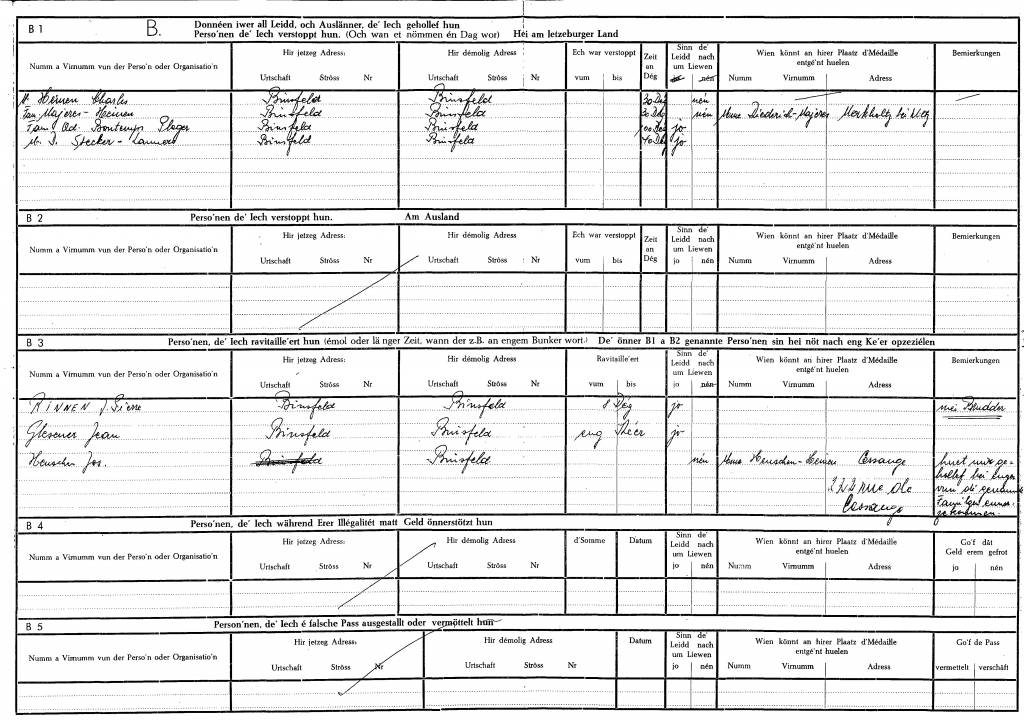 B 1 B. Donnéen iwer all Leidd, och Auslänner, de' Iech gehollef hun
Perso'nen de' Iech verstoppt hun. (Och wan et nömmen én Dag wor) Héi am letzeburger Land
Numm a Virnumm vun der Perso'n oder Organisatio'n
Hir jetzeg Adress:
Urtschaft Ströss Nr
Hir démolig Adress:
Urtschaft Ströss Nr
Ech war verstoppt
vum bis
Zeit
an
Dég
Sinn de'
Leidd nach
um Liewen
nén
Wien könnt an hirer Plaatz d'Médaille
entgé'nt huelen
Numm Virnumm Adress
Bemierkungen
Heinen Charles Binsfeld Binsfeld 30 Dég nén
Fam Majeres-Heinen Binsfeld Binsfeld 30 Dég nén Mme Diederich-Majeres Merkholtz
Fam Ad. Bontemps Binsfeld Binsfeld 100 Dég jo
Stecker - Binsfeld Binsfeld 40 Dég jo
B 2 Perso'nen de' Iech verstoppt hun. Am Ausland
Numm a Virnumm vun der Perso'n oder Organisatio'n
Hir jetzeg Adress:
Urtschaft Ströss Nr
Hir démolig Adress
Urtschaft Ströss Nr
Ech war verstoppt
vum bis
Zeit
an
Dég
Sinn de'
Leidd nach
um Liewen
jo nén
Wien könnt an hirer Plaatz d'Médaille
entgé'nt huelen
Numm Virnumm Adress
Bemierkungen
B 3 Perso'nen, de' Iech ravitaille'ert hun (émol oder länger Zeit, wann der z.B. an engem Bunker wort.) De' önner B1 a B2 genannte Perso'nen sin hei nöt nach eng Ke'er opzeziélen
Numm a Virnumm vun der Perso'n oder Organisatio'n
Hir jetzeg Adress:
Urtschaft Ströss Nr
Hir démolig Adress
Urtschaft Ströss Nr
Ravitaille'ert
vum bis
Sinn de'
Leidd nach
um Liewen
jo nén
Wien könnt an hirer Plaatz d'Médaille
entgé'nt huelen
Numm Virnumm Adress
Bemierkungen
RINNEN J. Pierre Binsfeld Binsfeld 8 Dég jo mei Brudder
Glesener Jean Binsfeld Binsfeld eng jo
Henschen Jos. Binsfeld Binsfeld nén Mme Henschen-Heinen Cessange
222 rue de
Cessange
huet mir ge-
hollef bei
vun de genannte
B 4 Perso'nen, de' Iech während Erer Illégalitét matt Geld önnerstötzt hun
Numm a Virnumm vun der Perso'n oder Organisatio'n
Hir jetzeg Adress:
Urtschaft Ströss Nr
Hir démolig Adress
Urtschaft Ströss Nr
d'Somme
Datum
Sinn de'
Leidd nach
um Liewen
jo nén
Wien könnt an hirer Plaatz d'Médaille
entgé'nt huelen
Numm Virnumm Adress
Go'f dât
Geld erem gefrot
jo nén
B 5 Person'nen, de' Iech é falsche Pass ausgestallt oder vermöttelt hun
Numm a Virnumm vun der Perso'n oder Organisatio'n
Hir jetzeg Adress:
Urtschaft Ströss Nr
Hir démolig Adress:
Urtschaft Ströss Nr
Datum
Sinn de'
Leidd nach
um Liewen
jo nén
Wien könnt an hirer Plaatz d'Médaille
entgé'nt huelen
Numm Virnumm Adress
Go'f de Pass
vermettelt verschâft